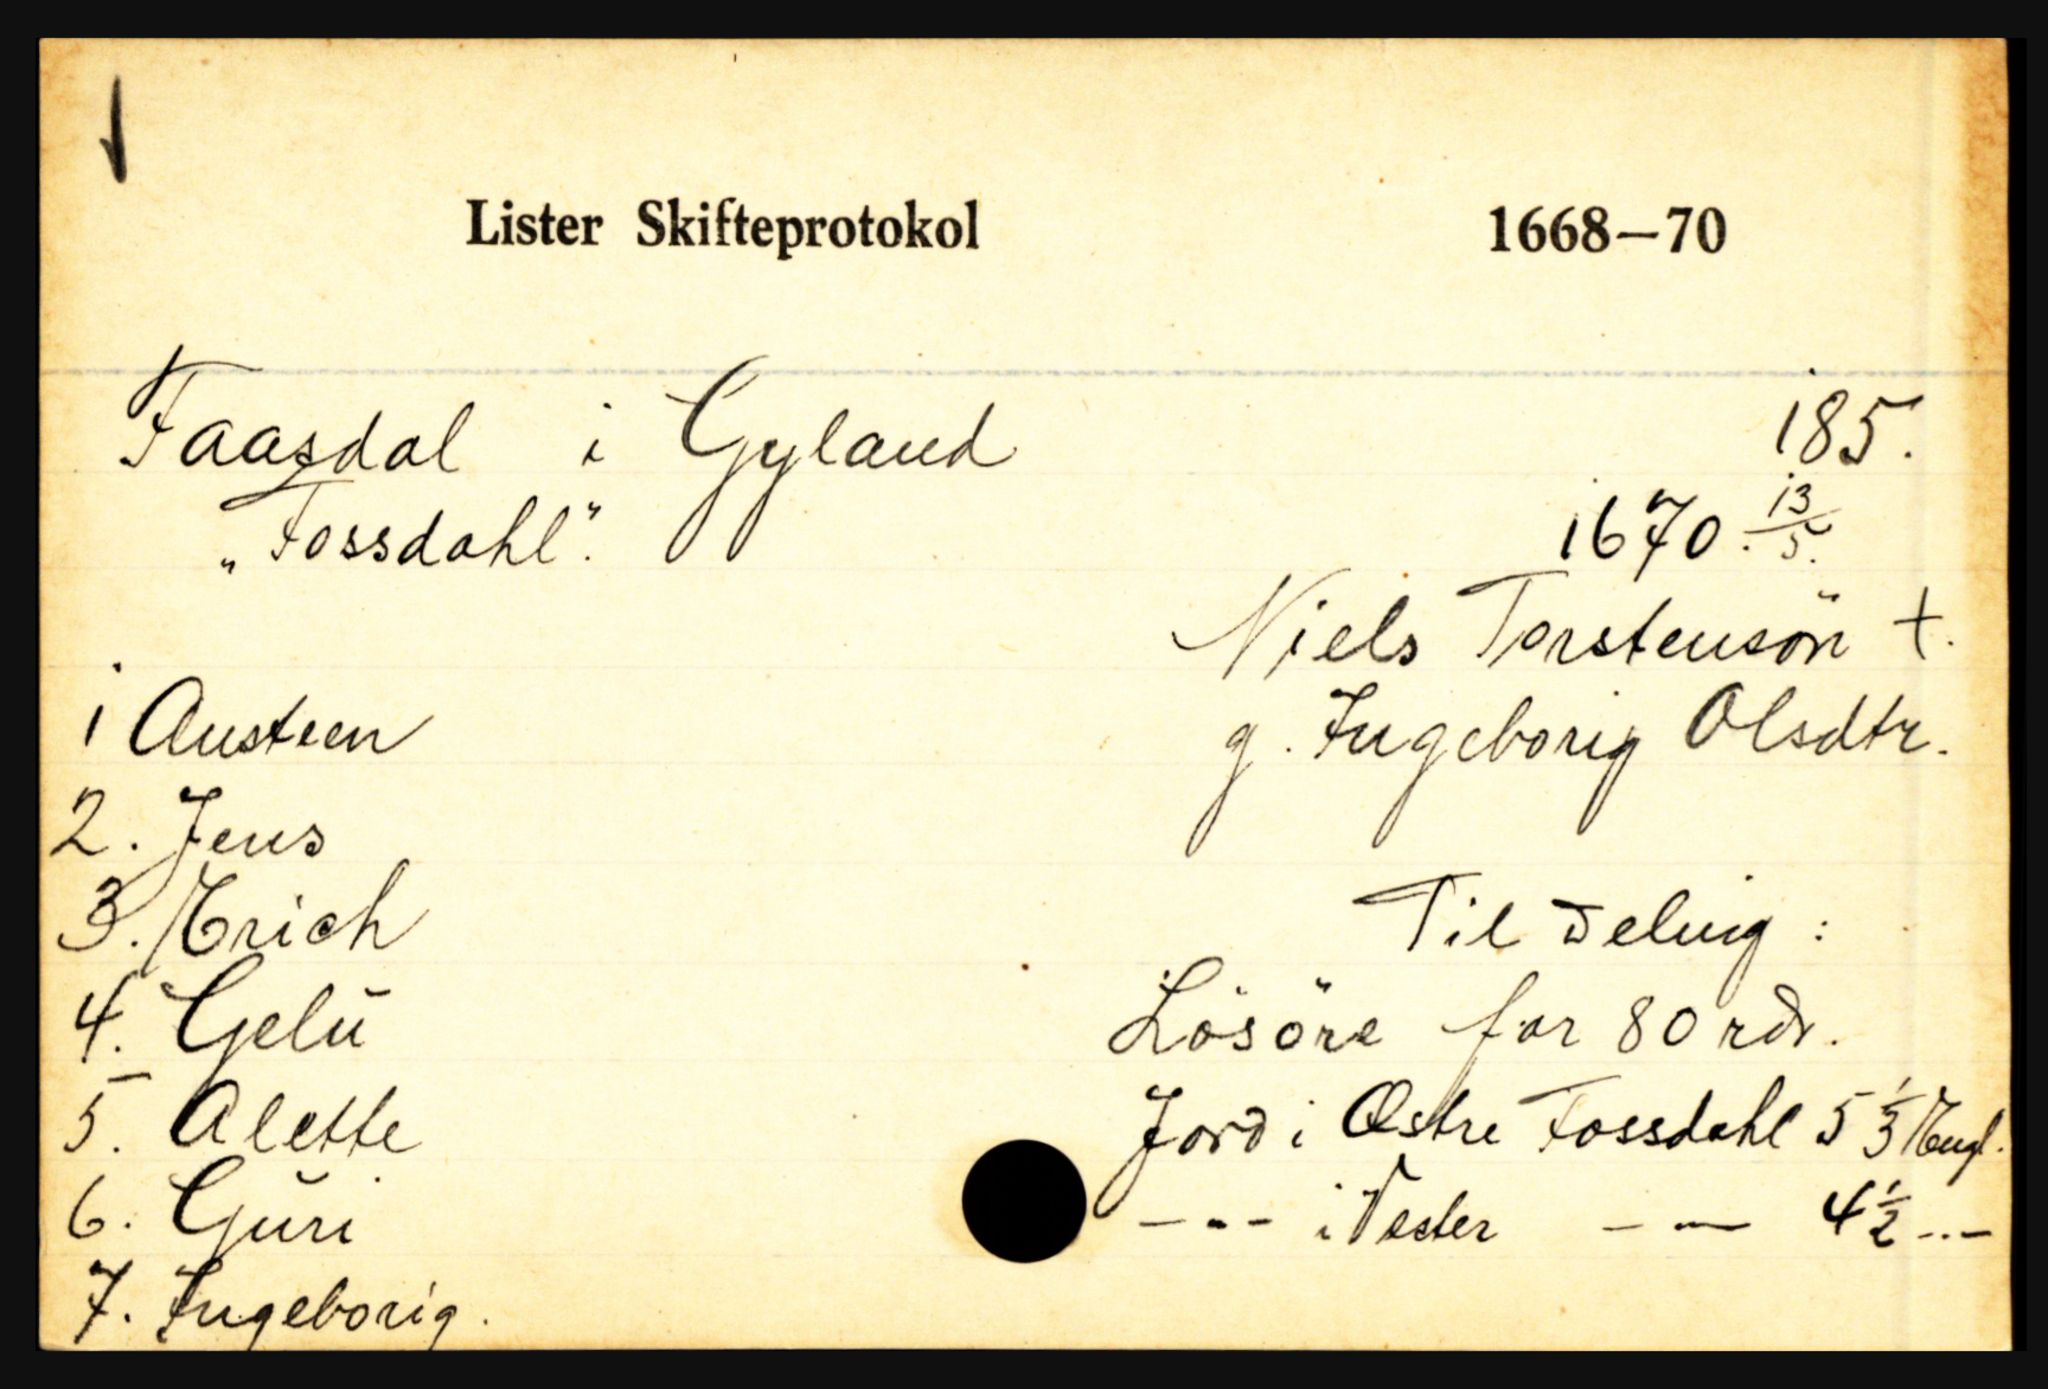 Lister Skifteprotokol 1668—70
Faasdal i Gyland 185.
„Fossdahl". 1670. 13/5.
Niels Torstensön +.
1 Austeen g. Ingeborig Olsdtr.
2. Jens
3. Erich Til Deling :
4. Gelü Lösöre for 80 rdr.
5. Alette Jord i Østre Fossdahl 5 1/3 Engl.
6. Güri --- i Vester — — 4 1/2 ---
7. Ingeborig.